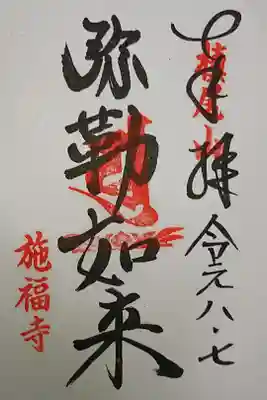 奉拝 令元八・七
槇尾山
弥勒如来
施福寺